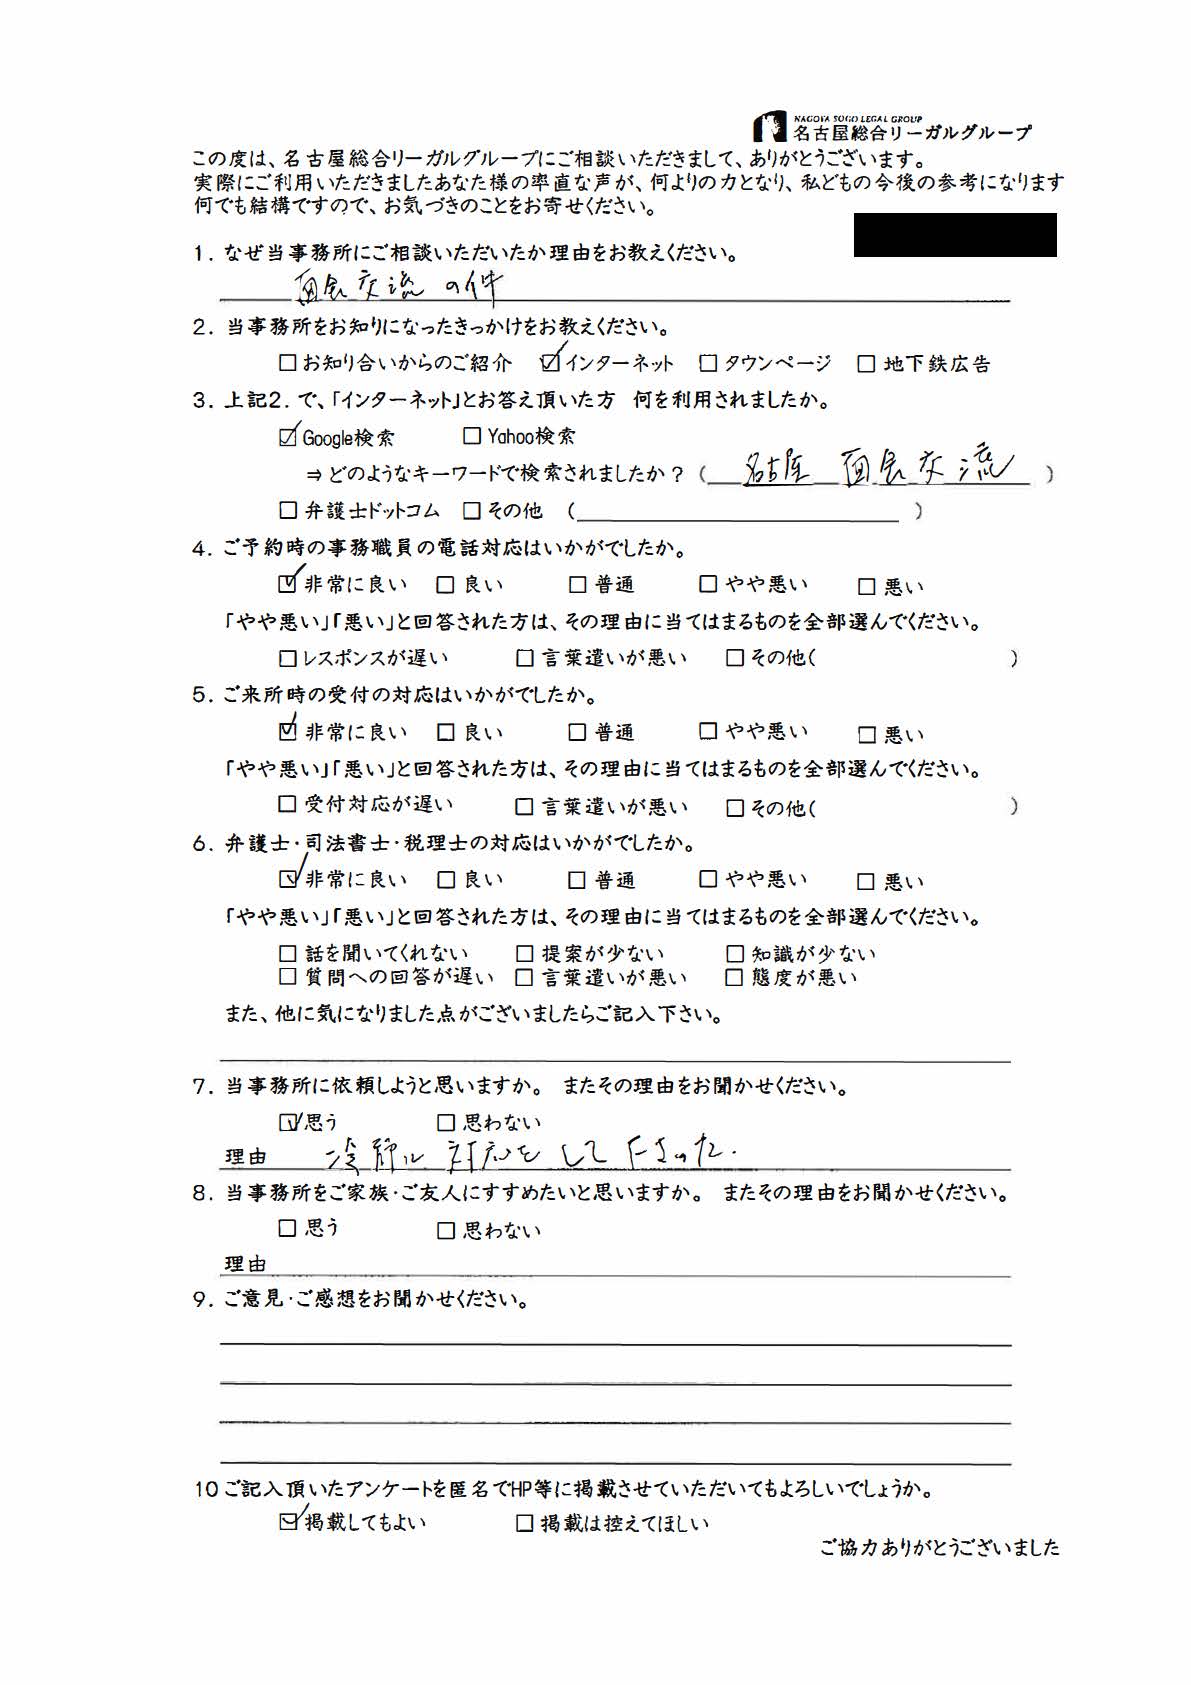 NAGOYA SOGO LEGAL GROUP
名古屋総合リーガルグループ
この度は、名古屋総合リーガルグループにご相談いただきまして、ありがとうございます。
実際にご利用いただきましたあなた様の率直な声が、何よりの力となり、私どもの今後の参考になります
何でも結構ですので、お気づきのことをお寄せください。
1. なぜ当事務所にご相談いただいたか理由をお教えください。
面会交流の件
2. 当事務所をお知りになったきっかけをお教えください。
□お知り合いからのご紹介 ☑インターネット □タウンページ □地下鉄広告
3. 上記2. で、「インターネット」とお答え頂いた方 何を利用されましたか。
☑Google検索 □Yahoo検索
⇒どのようなキーワードで検索されましたか？ ( 名古屋 面会交流 )
□弁護士ドットコム □その他 ( )
4. ご予約時の事務職員の電話対応はいかがでしたか。
☑非常に良い □良い □普通 □やや悪い □悪い
「やや悪い」「悪い」と回答された方は、その理由に当てはまるものを全部選んでください。
□レスポンスが遅い □言葉遣いが悪い □その他( )
5. ご来所時の受付の対応はいかがでしたか。
☑非常に良い □良い □普通 □やや悪い □悪い
「やや悪い」「悪い」と回答された方は、その理由に当てはまるものを全部選んでください。
□受付対応が遅い □言葉遣いが悪い □その他( )
6. 弁護士・司法書士・税理士の対応はいかがでしたか。
☑非常に良い □良い □普通 □やや悪い □悪い
「やや悪い」「悪い」と回答された方は、その理由に当てはまるものを全部選んでください。
□話を聞いてくれない □提案が少ない □知識が少ない
□質問への回答が遅い □言葉遣いが悪い □態度が悪い
また、他に気になりました点がございましたらご記入下さい。
7. 当事務所に依頼しようと思いますか。 またその理由をお聞かせください。
☑思う □思わない
理由 冷静に対応をして下さった.
8. 当事務所をご家族・ご友人にすすめたいと思いますか。 またその理由をお聞かせください。
□思う □思わない
理由
9. ご意見・ご感想をお聞かせください。
10 ご記入頂いたアンケートを匿名でHP等に掲載させていただいてもよろしいでしょうか。
☑掲載してもよい □掲載は控えてほしい
ご協力ありがとうございました